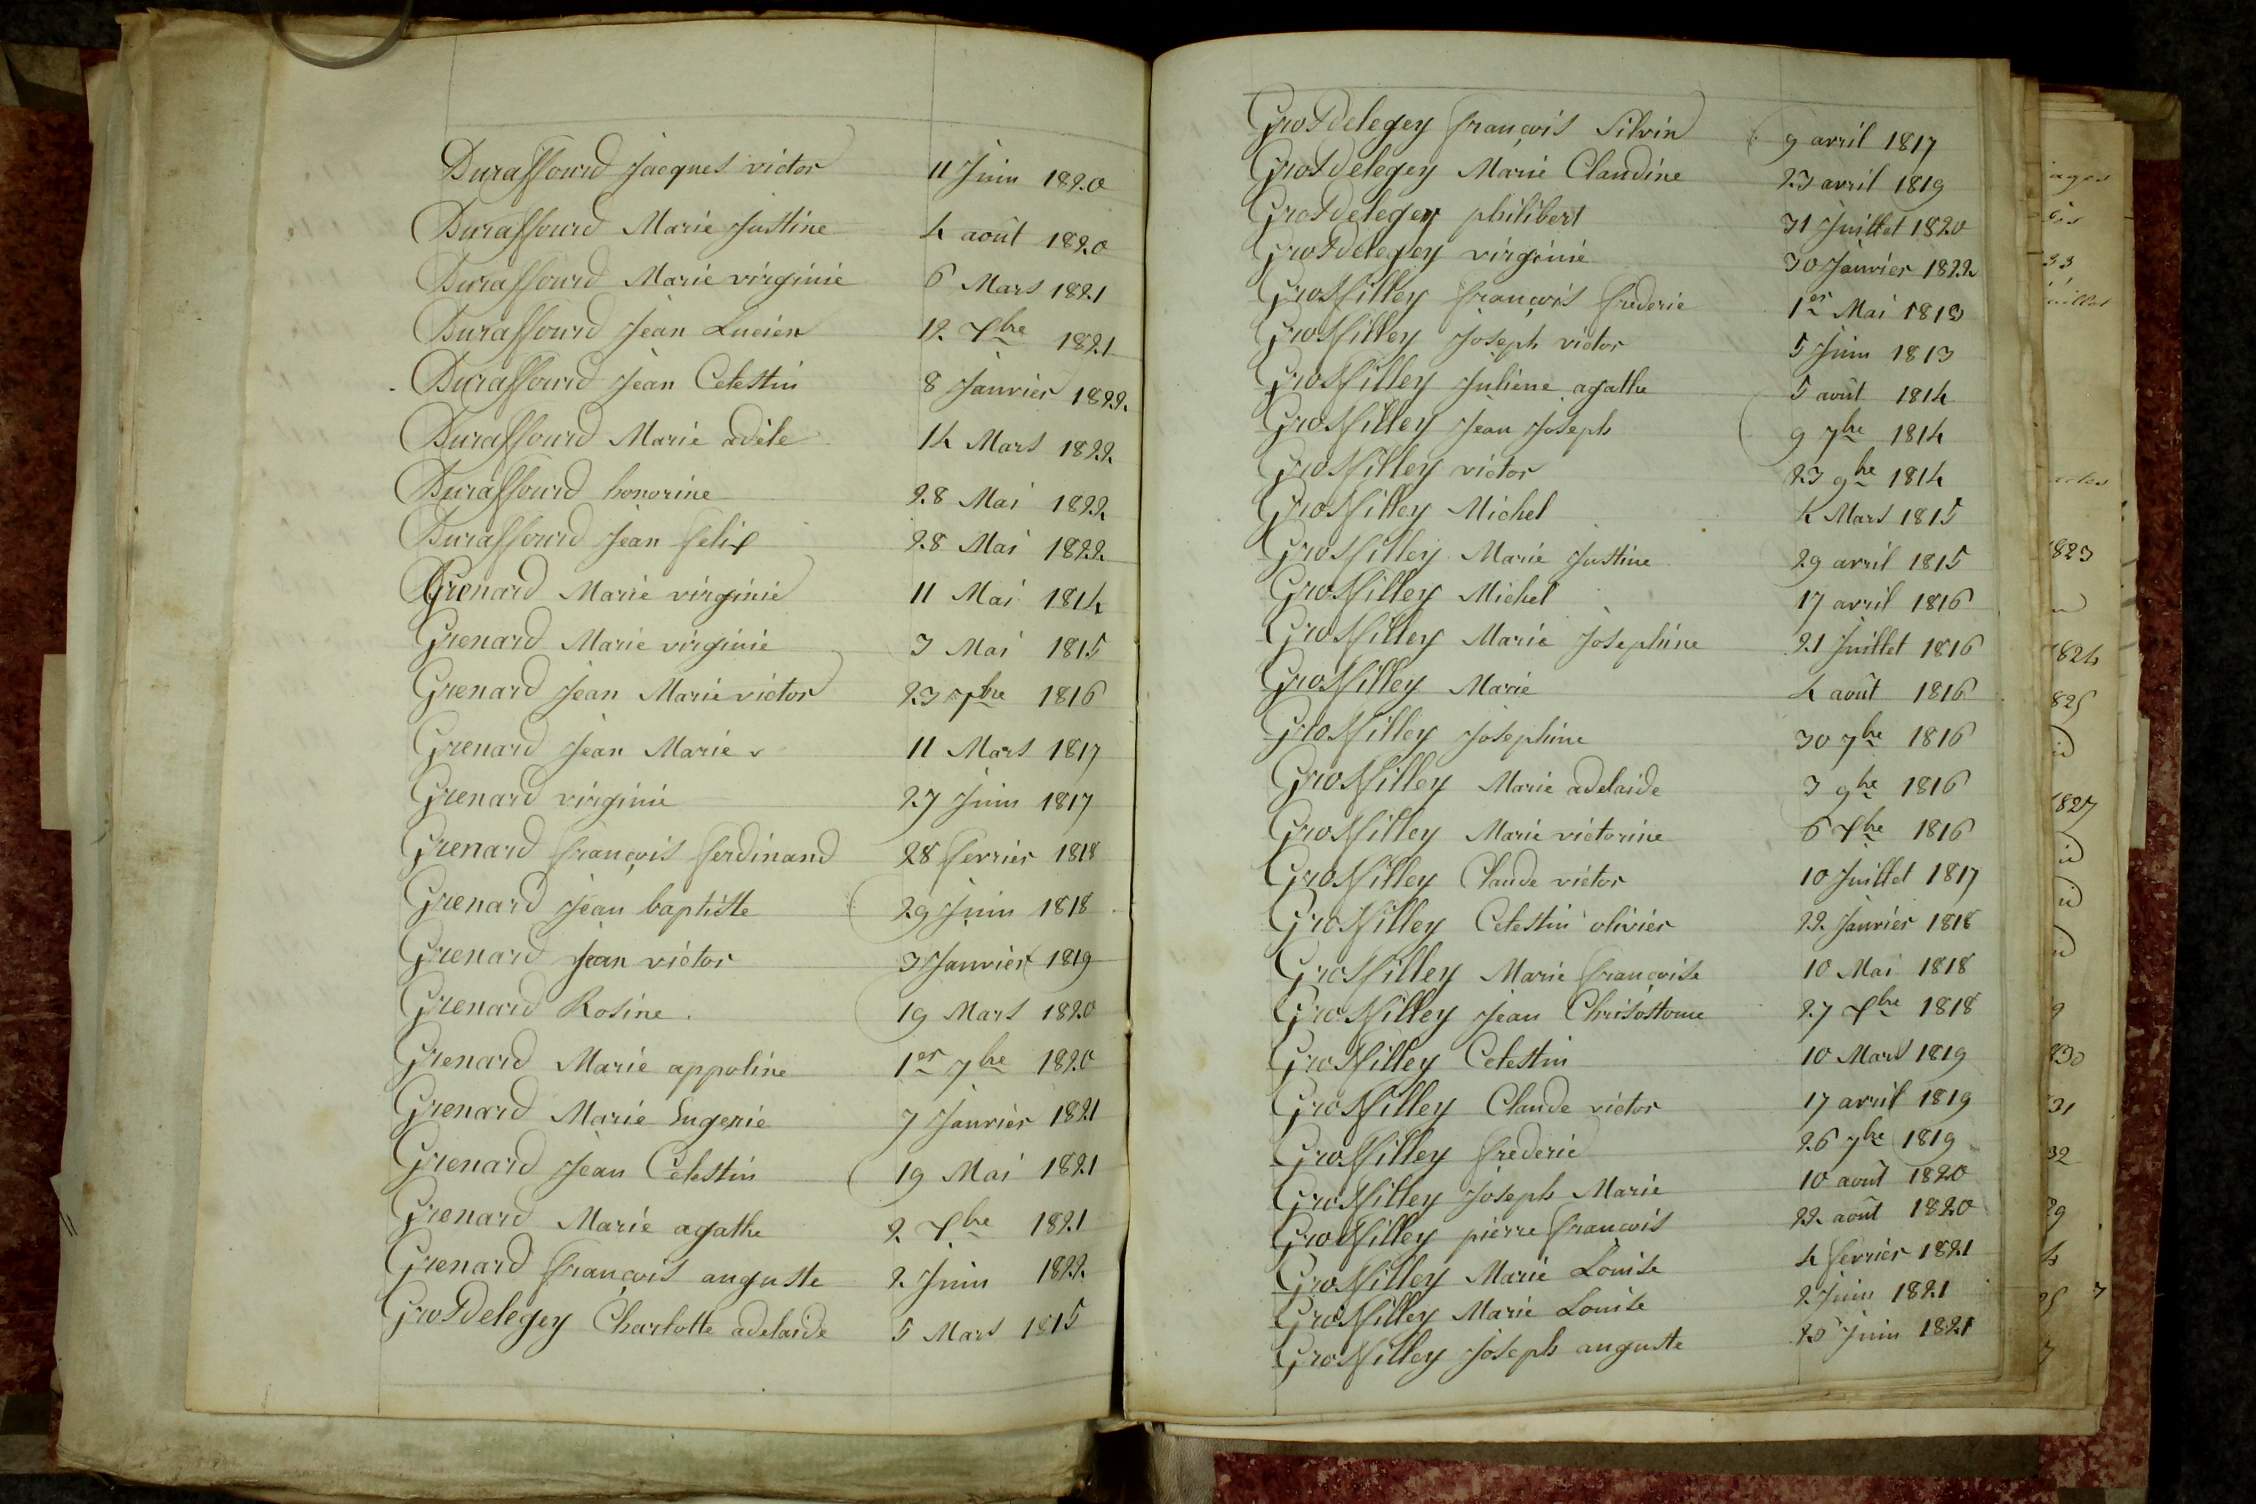 Duraffourd Jacques victor 11 Juin 1820
Duraffourd Marie Justine 4 août 1820
Duraffourd Marie virginie 6 Mars 1821
Duraffourd Jean Lucien 12 Xbre 1821
Duraffourd Jean Celestin 8 Janvier 1822
Duraffourd Marie adèle 14 Mars 1822
Duraffourd honorine 28 Mai 1822
Duraffourd Jean felix 28 Mai 1822
Grenard Marie virginie 11 Mai 1814
Grenard Marie virginie 3 Mai 1815
Grenard Jean Marie victor 23 7bre 1816
Grenard Jean Marie 11 Mars 1817
Grenard virginie 27 Juin 1817
Grenard françois ferdinand 28 fevrier 1818
Grenard Jean baptiste 29 Juin 1818
Grenard Jean victor 3 Janvier 1819
Grenard Rosine 19 Mars 1820
Grenard Marie appoline 1er 7bre 1820
Grenard Marie Eugenie 7 Janvier 1821
Grenard Jean Celestin 19 Mai 1821
Grenard Marie agathe 2 Xbre 1821
Grenard françois auguste 2 Juin 1822
Grosdelegey Charlotte adelaide 5 Mars 1815
Grosdelegey françois Silvin 9 avril 1817
Grosdelegey Marie Claudine 23 avril 1819
Grosdelegey philibert 31 Juillet 1820
Grosdelegey virginie 30 Janvier 1822
Grosfilley françois frederic 1er Mai 1813
Grosfilley Joseph victor 5 Juin 1813
Grosfilley Juliene agathe 5 août 1814
Grosfilley Jean Joseph 9 7bre 1814
Grosfilley victor 23 9bre 1814
Grosfilley Michel 4 Mars 1815
Grosfilley Marie Justine 29 avril 1815
Grosfilley Michel 17 avril 1816
Grosfilley Marie Josephine 21 Juillet 1816
Grosfilley Marie 4 août 1816
Grosfilley Josephine 30 7bre 1816
Grosfilley Marie adelaide 3 9bre 1816
Grosfilley Marie victorine 6 Xbre 1816
Grosfilley Claude victor 10 Juillet 1817
Grosfilley Celestin olivier 22 Janvier 1818
Grosfilley Marie françoise 10 Mai 1818
Grosfilley Jean Chrisostome 27 Xbre 1818
Grosfilley Celestin 10 Mars 1819
Grosfilley Claude victor 17 avril 1819
Grosfilley frederic 26 7bre 1819
Grosfilley Joseph Marie 10 août 1820
Grosfilley pierre françois 22 août 1820
Grosfilley Marie Louise 4 fevrier 1821
Grosfilley Marie Louise 2 Juin 1821
Grosfilley Joseph auguste Juin 1821